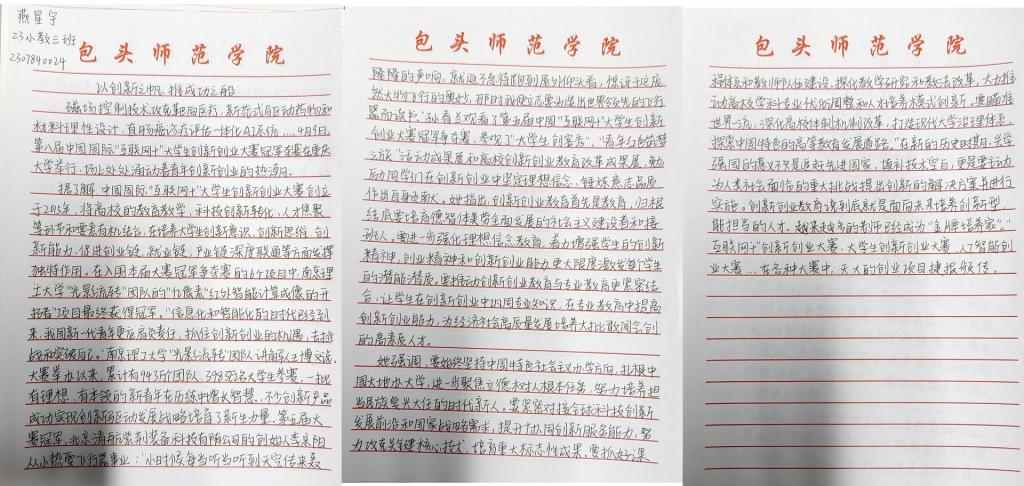 燕星宇
23小教三班
2307840024
包头师范学院
以创新之帆,推成功之船
磁场控制技术攻克靶向医药,新范式驱动药物和
材料理性设计,盲肠癌诊疗评估一体化AI系统……4月9日,
第八届中国国际“互联网+”大学生创新创业大赛冠军争夺赛在重庆
大学举行,场处处涌动着青年创新创业的热潮。
据了解,中国国际“互联网+”大学生创新创业大赛创立
于2015年,将高校的教育教学,科技创新转化,人才集聚
等环节和要素有机结合,在培养大学生创新意识、创新思维、创
新能力,促进创业链、就业链、产业链深度联通等方面发挥
独特作用。在入围本届大赛冠军争夺赛的6个项目中,南京理
工大学“光影流转”团队的“亿像素红外智能计算成像的开
拓者”项目最终获得冠军。“信息化和智能化的时代已经到
来,我国新一代青年更应肩负责任,抓住创新创业的机遇,去挑
战和突破自己。”南京理工大学“光影流转”团队讲解队王博文说。
大赛举办以来,累计有943万个团队、3983万名大学生参赛,一批
有理想、有本领的新青年在历练中增长智慧,不少创新产品
成功实现创新驱动发展战略储育了新生力量。第五届大
赛冠军、北京清航紫荆装备科技有限公司的创始人李京阳
从小热爱飞行器事业:“小时候每当听当听到天空传来轰
包头师范学院
隆隆的声响,就迫不急待跑到屋外仰头看,惊讶于这庞
然大物飞行的奥妙,那时我便立志要制造出世界领先的飞行
器而读书。”孙春兰观看了第五届中国“互联网+”大学生创新
创业大赛冠军争夺赛,参观了“大学生创客秀”、“青年红色筑梦
之旅”活动成果展和高校创新创业教育改革成果展,勉
励同学们在创新创业中坚定理想信念、锤炼意志品质,
作出自身贡献大。她指出,创新创业教育首先是教育,归根
结底要培育德智体美劳全面发展的社会主义建设者和接
班人。要进一步强化理想信念教育,着力增强学生的创新
精神,创业精神和创新创业能力更大限度激发每个学生
的潜能潜质。要推动创新创业教育与专业教育更紧密结
合,让学生在创新创业中巩固专业知识,在专业教育中提高
创新创业能力,为经济社会高质量发展培养大批敢闯会创
的高素质人才。
她强调,要始终坚持中国特色社会主义办学方向,扎根中
国大地办大学,进一步聚焦立德树人根本任务,努力培养担
当民族复兴大任的时代新人。要紧密对接全球科技创新
发展前沿和国家战略需求,提升协同创新服务能力,努
力攻克关键核心技术,培育重大标志性成果,要抓好课
包头师范学院
程体系和教师队伍建设,深化教学研究和教法改革,大力推
动高校学科专业优化调整和人才培养模式创新,要瞄准
世界一流,深化高校体制机制改革,打造现代大学治理体系,
探索中国特色的高等教育发展道路。“在新的历史时期,光学
强国的意义不只是追赶先进国家、填科技大空白,更是要主动
为人类社会面临的重大挑战提出创新的解决方案并进行
实施。创新创业教育说到底就是面向未来培养创新型
能担当的人才。越来越多的老师已经成为“金牌培养家”。”
互联网+创新创业大赛、大学生创新创业大赛、人工智能创
业大赛……在各种大赛中,天大的创业项目捷报频传。